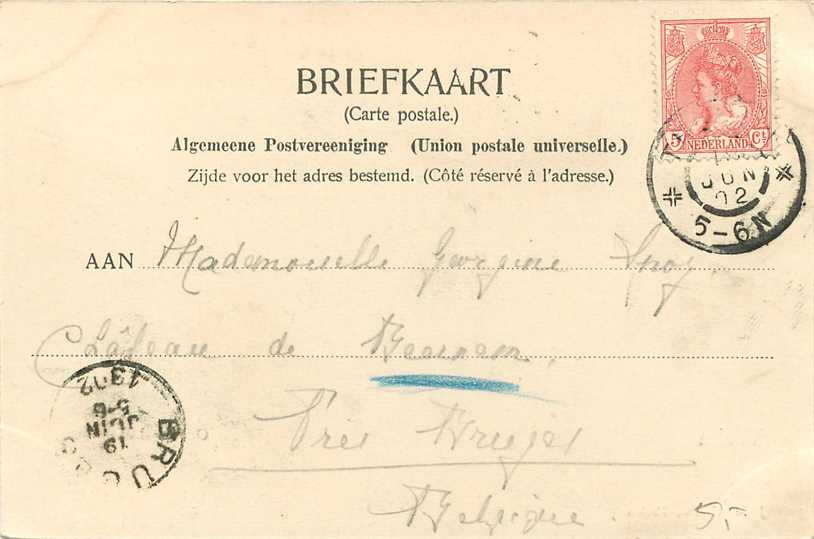 BRIEFKAART
(Carte postale.)
Algemeene Postvereeniging (Union postale universelle.)
Zijde voor het adres bestemd. (Côté réservé à l'adresse.)
5 Ct
NEDERLAND
JUN
02
5-6N
AAN Mademoiselle Georgine Snoy
Château de Beernem
Près Bruges
Belgique
BRUGES
19
JUIN
5-6
1902
5,-